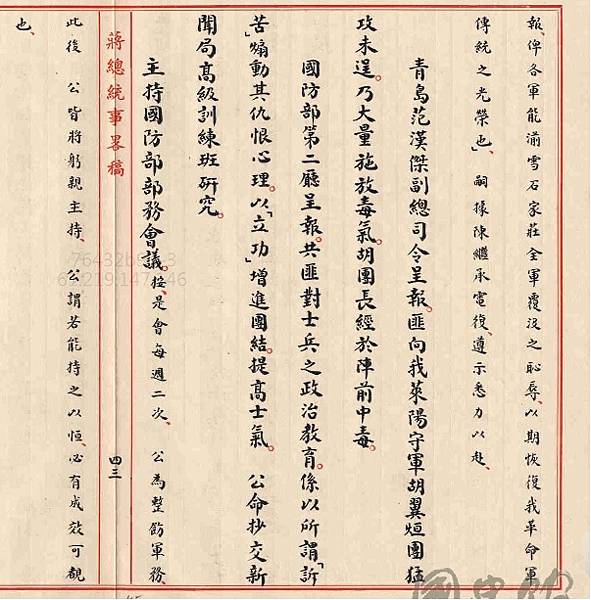 報、俾各軍能湔雪石家莊全軍覆沒之恥辱、以期恢復我革命軍
傳統之光榮也」嗣據陳繼承電復、遵示悉力以赴、
青島范漢傑副總司令呈報。匪向我萊陽守軍胡翼烜團猛
攻未逞。乃大量施放毒氣。胡團長經於陣前中毒。
國防部第二廳呈報。共匪對士兵之政治教育。係以所謂「訴
苦」煽動其仇恨心理。以「立功」增進團結。提高士氣。公命抄交新
聞局高級訓練班研究。
主持國防部部務會議。按、是會每週二次、公為整飭軍務
蔣總統事畧稿
四三
此後公皆將躬親主持、公謂若能持之以恒、必有成效可覩
也、
國史館